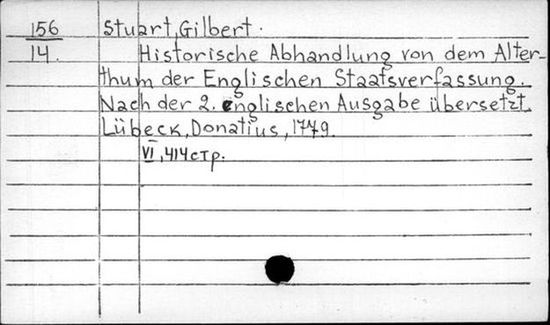 156 Stuart, Gilbert.
14. Historische Abhandlung von dem Alter-
thum der Englischen Staatsverfassung.
Nach der 2. englischen Ausgabe übersetzt.
Lübeck, Donatius, 1779.
VI, 414 стр.